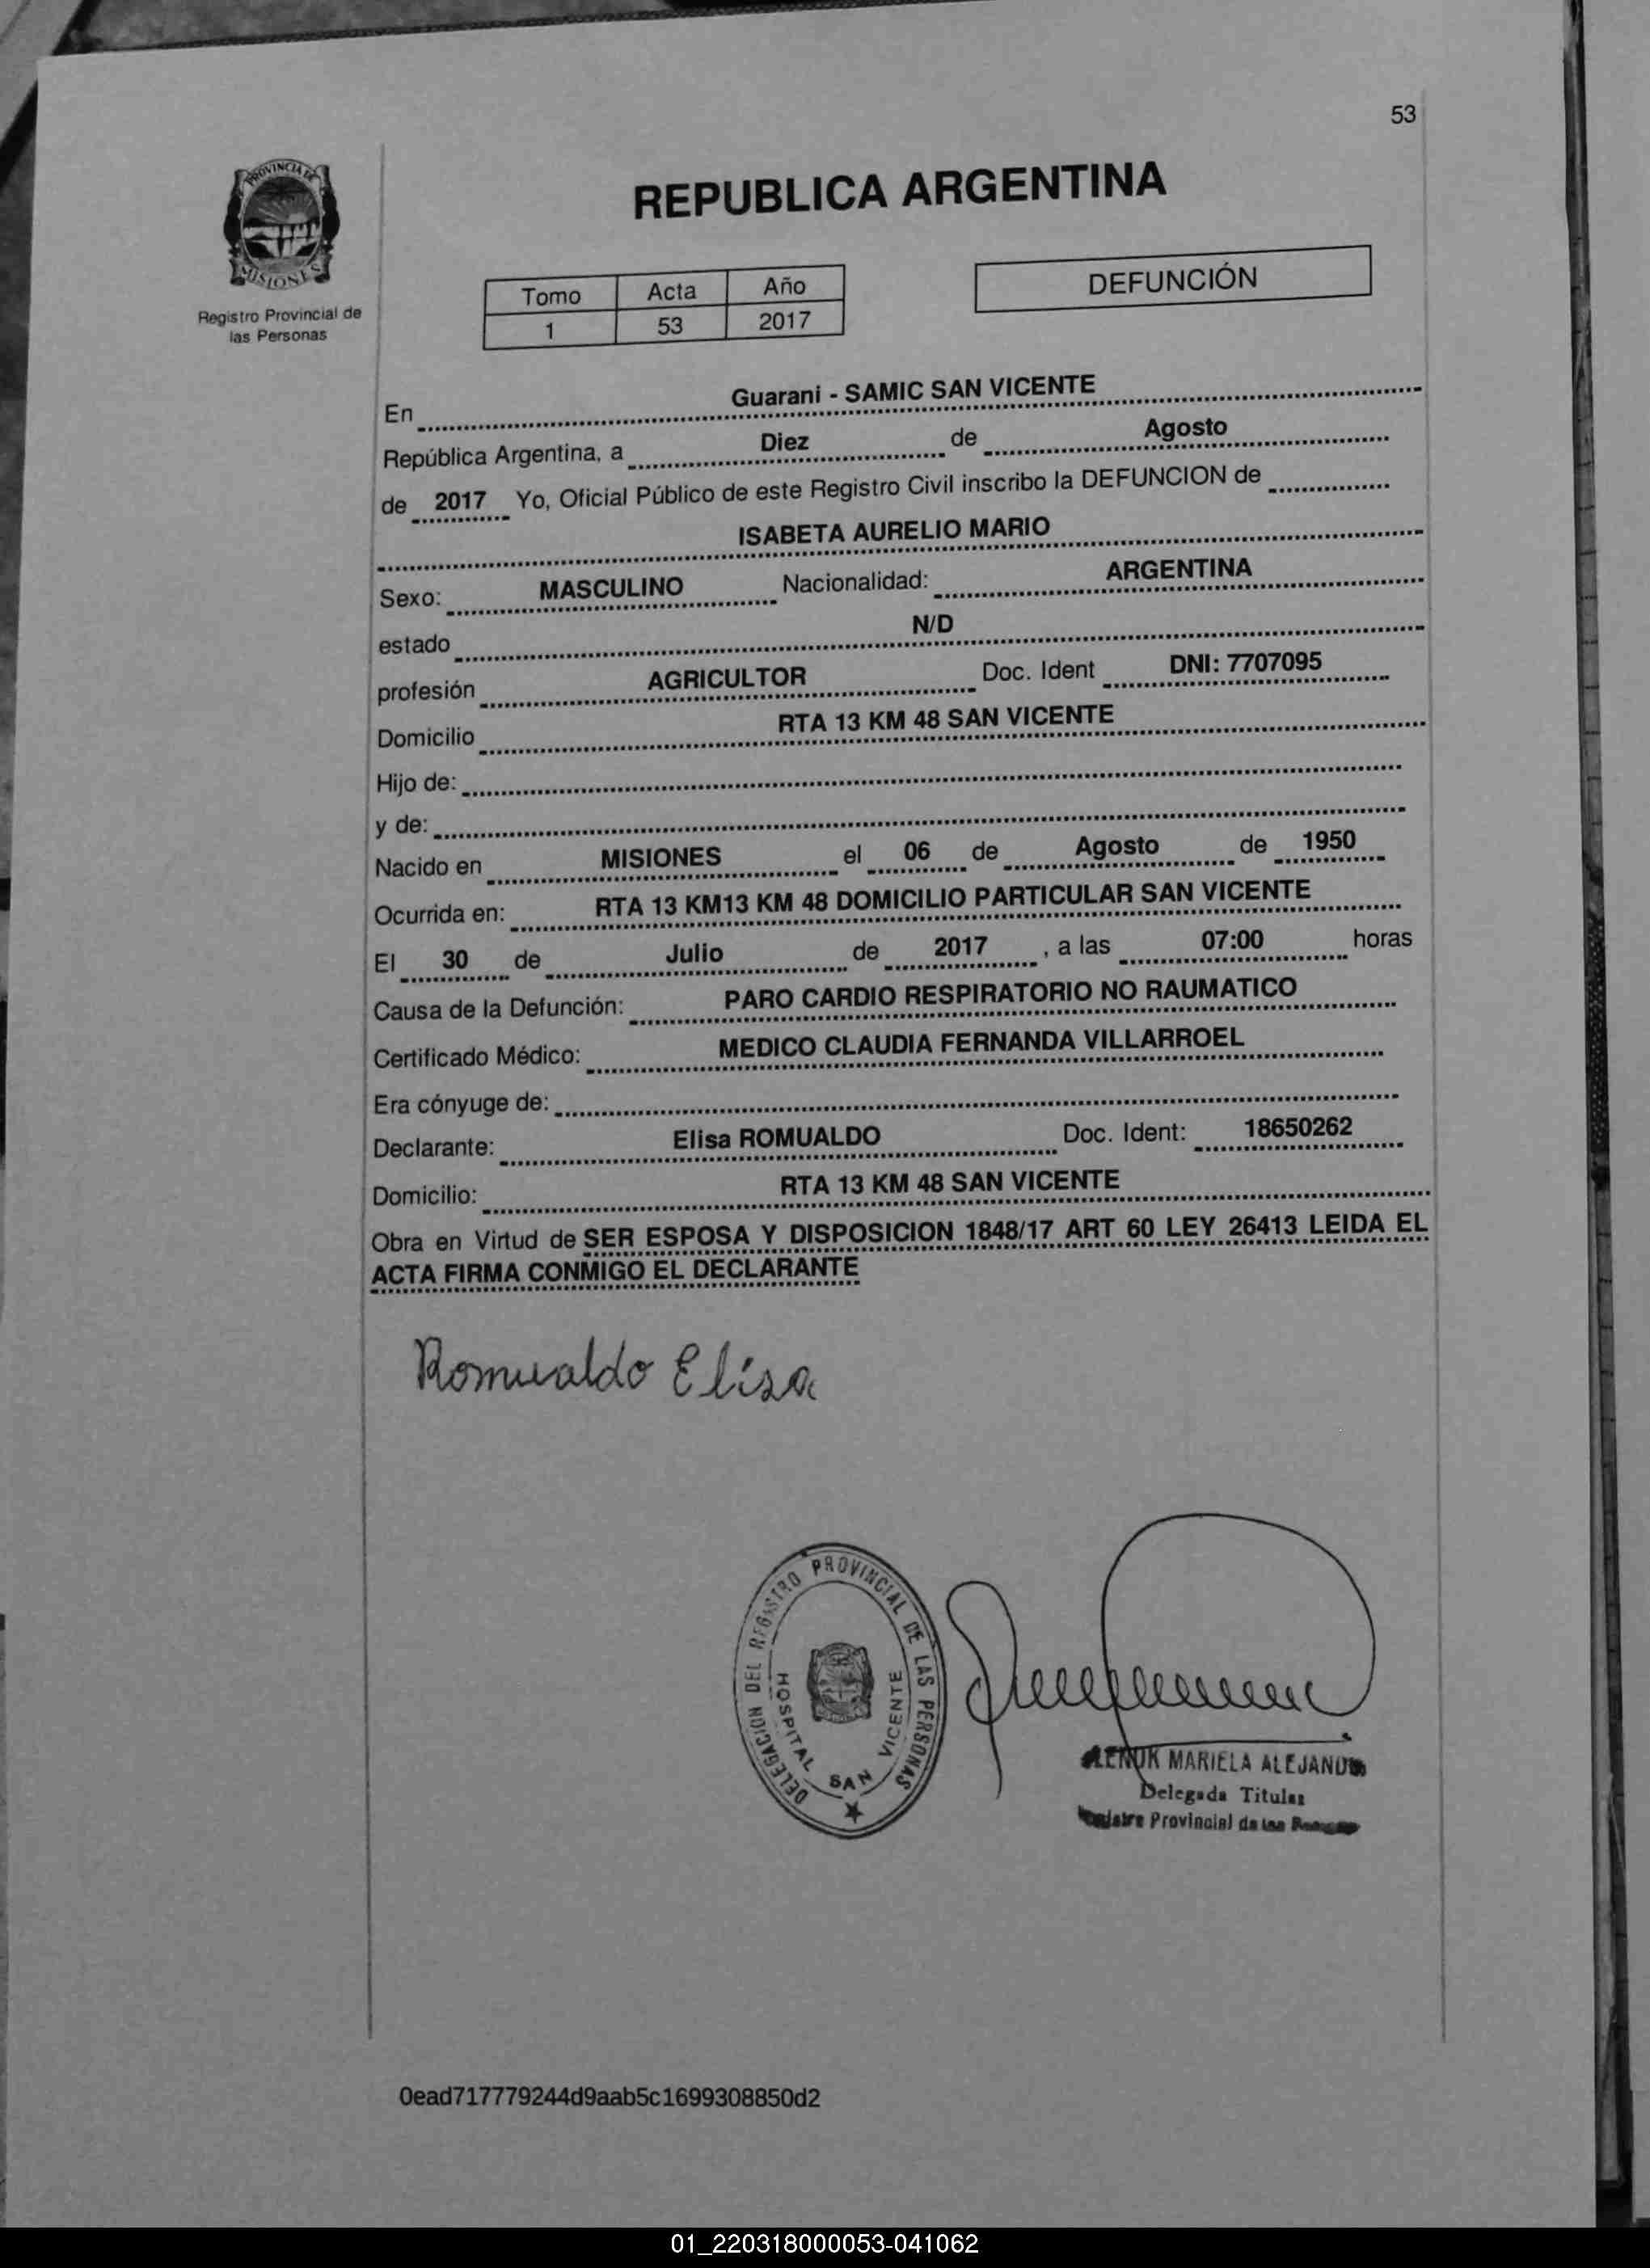 53
PROVINCIA DE
MISIONES
Registro Provincial de
las Personas
REPUBLICA ARGENTINA
Tomo Acta Año
1 53 2017
DEFUNCIÓN
En Guarani - SAMIC SAN VICENTE
República Argentina, a Diez de Agosto
de 2017 Yo, Oficial Público de este Registro Civil inscribo la DEFUNCION de
ISABETA AURELIO MARIO
Sexo: MASCULINO Nacionalidad: ARGENTINA
estado N/D
profesión AGRICULTOR Doc. Ident DNI: 7707095
Domicilio RTA 13 KM 48 SAN VICENTE
Hijo de:
y de:
Nacido en MISIONES el 06 de Agosto de 1950
Ocurrida en: RTA 13 KM13 KM 48 DOMICILIO PARTICULAR SAN VICENTE
El 30 de Julio de 2017 , a las 07:00 horas
Causa de la Defunción: PARO CARDIO RESPIRATORIO NO RAUMATICO
Certificado Médico: MEDICO CLAUDIA FERNANDA VILLARROEL
Era cónyuge de:
Declarante: Elisa ROMUALDO Doc. Ident: 18650262
Domicilio: RTA 13 KM 48 SAN VICENTE
Obra en Virtud de SER ESPOSA Y DISPOSICION 1848/17 ART 60 LEY 26413 LEIDA EL
ACTA FIRMA CONMIGO EL DECLARANTE
Romualdo Elisa
DELEGACION DEL REGISTRO PROVINCIAL DE LAS PERSONAS
HOSPITAL SAN VICENTE
MARIELA
Delegada Titular
Provincial de las
0ead717779244d9aab5c1699308850d2
01_220318000053-041062